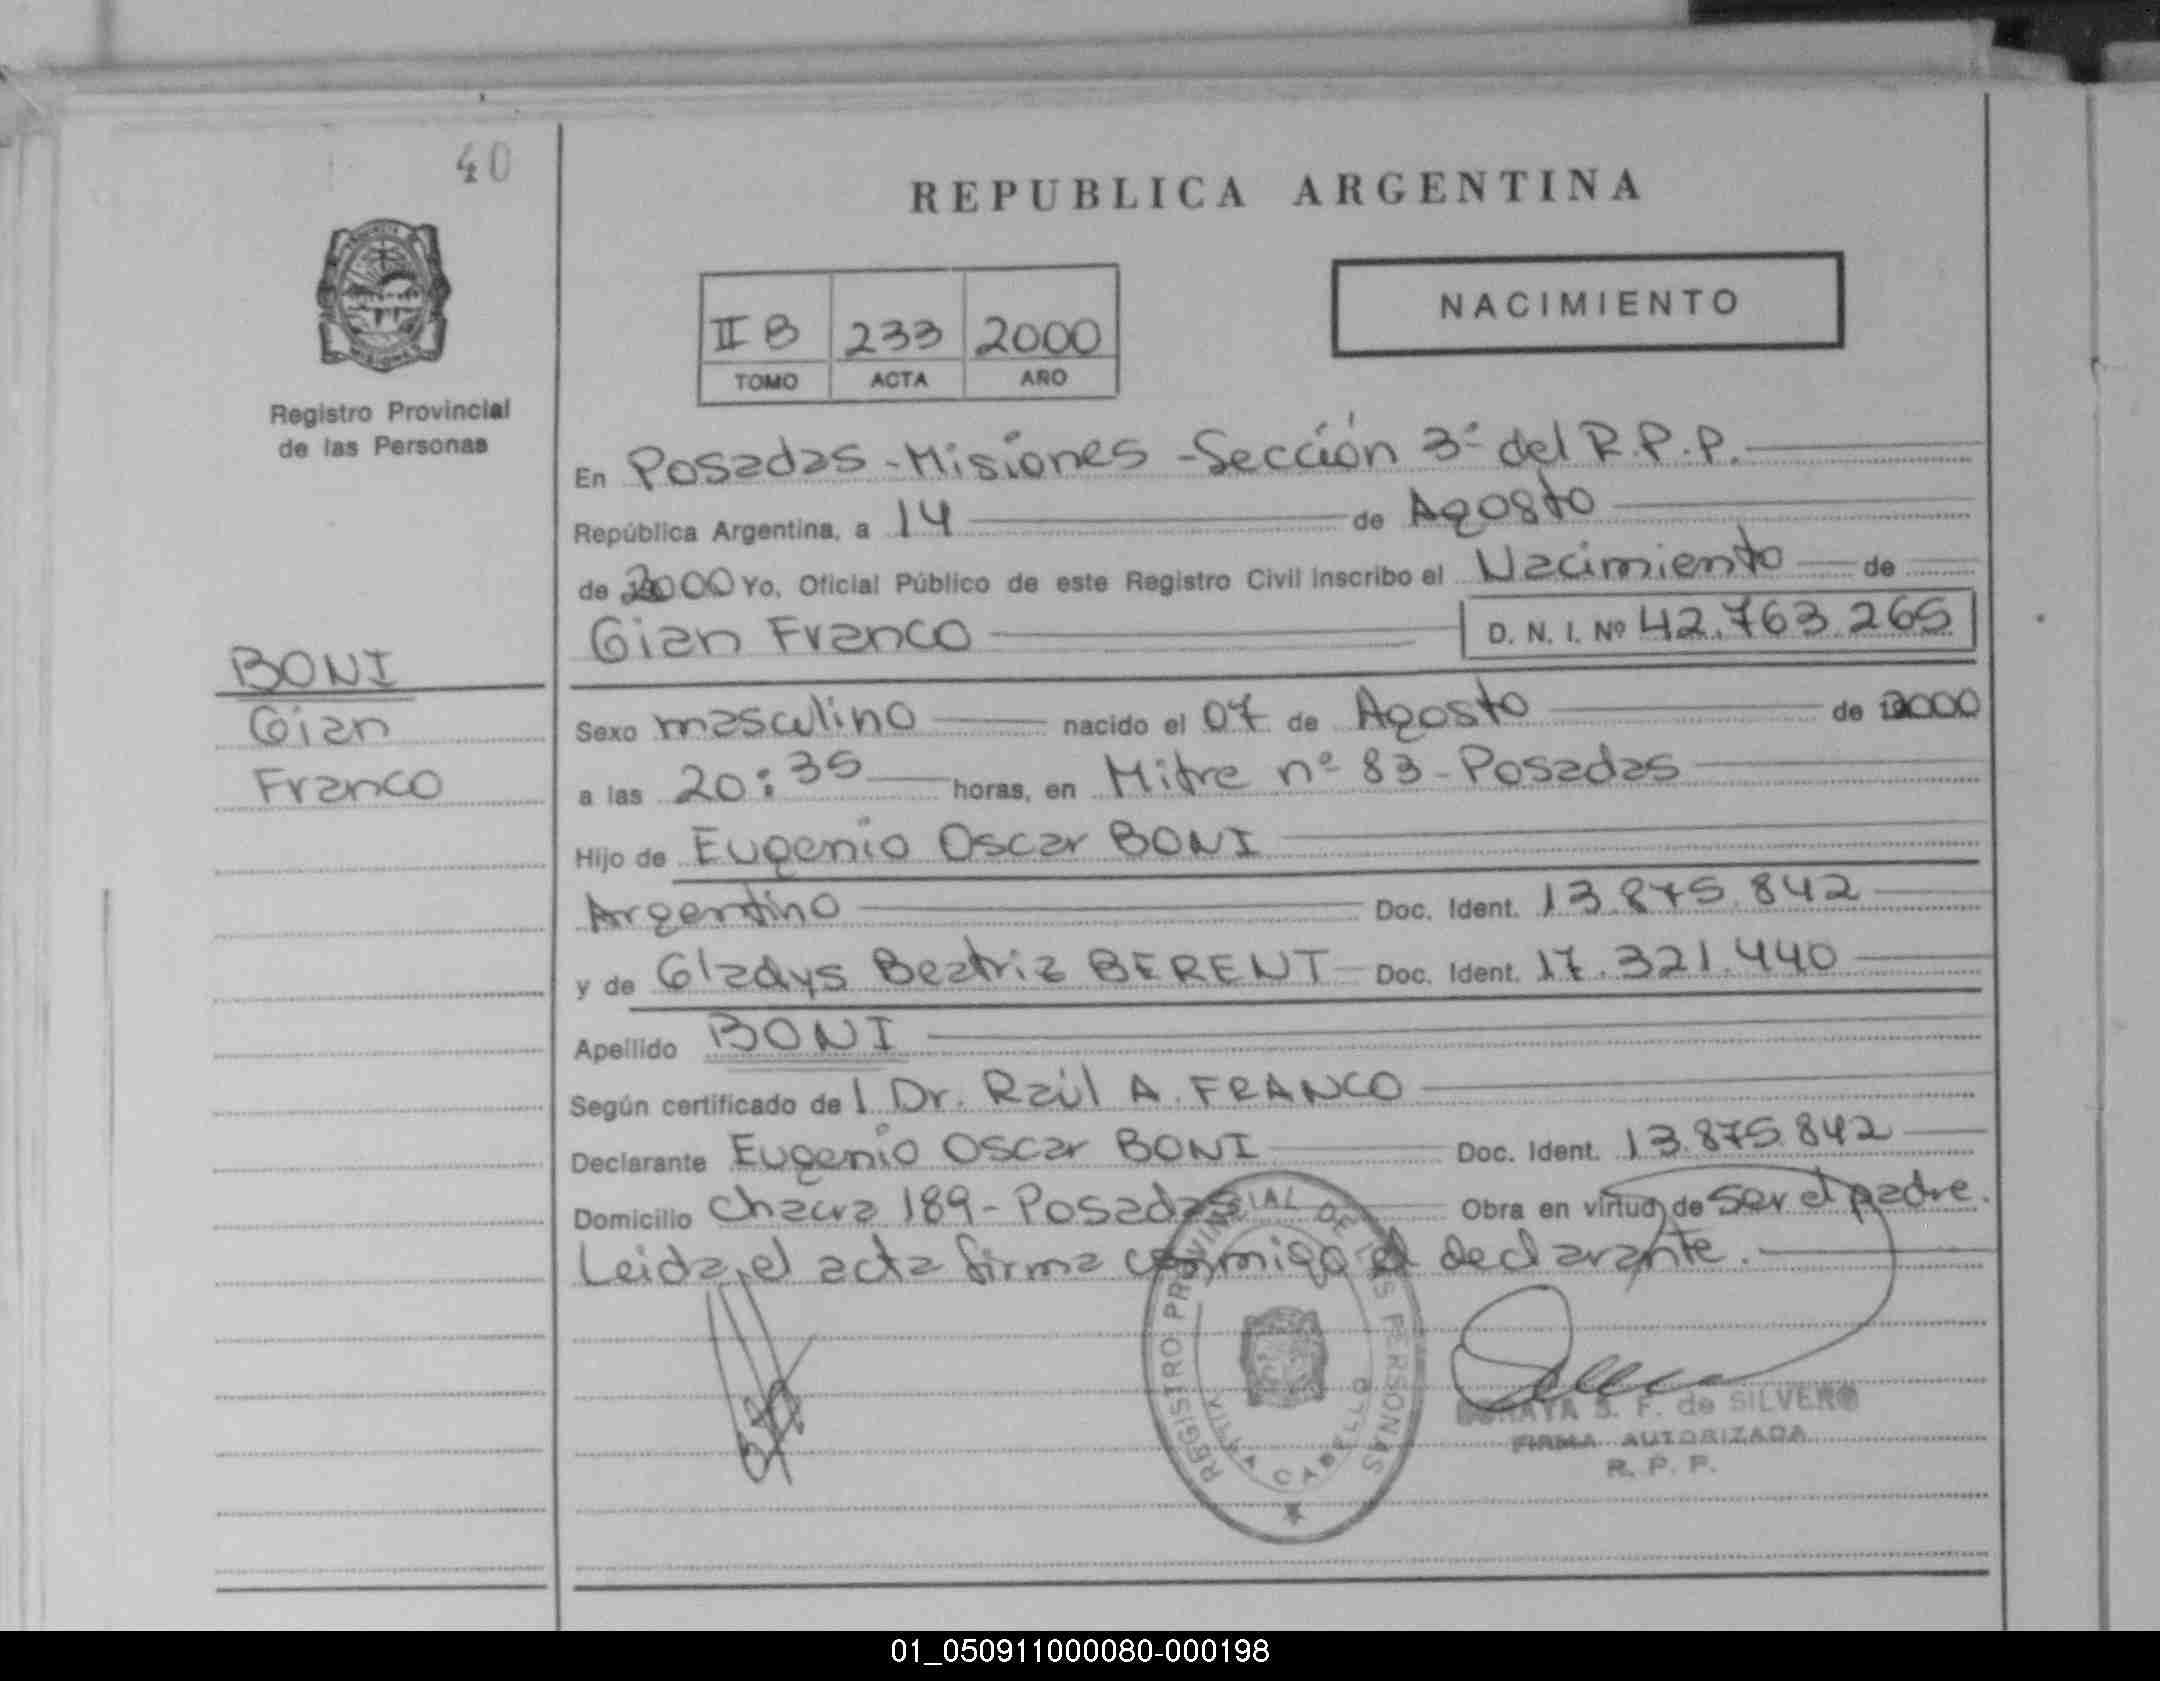 40
REPUBLICA ARGENTINA
II B 233 2000
TOMO ACTA AÑO
NACIMIENTO
Registro Provincial
de las Personas
En Posadas - Misiones - Sección 3ª del R.P.P.
República Argentina, a 14 de Agosto
de 2000 Yo, Oficial Público de este Registro Civil inscribo el Nacimiento de
Gian Franco D. N. I. Nº 42.763.265
BONI
Gian
Franco
Sexo masculino nacido el 07 de Agosto de 2000
a las 20:35 horas, en Mitre nº 83 - Posadas
Hijo de Eugenio Oscar BONI
Argentino Doc. Ident. 13.875.842
y de Gladys Beatriz BERENT Doc. Ident. 17.321.440
Apellido BONI
Según certificado de l Dr. Raúl A. FRANCO
Declarante Eugenio Oscar BONI Doc. Ident. 13.875.842
Domicilio Chacra 189 - Posadas Obra en virtud de ser el padre.
Leida el acta firma conmigo el declarante.
REGISTRO PROVINCIAL DE LAS PERSONAS
VILLA CABELLO
S. F. de SILVERO
FIRMA AUTORIZADA
R. P. P.
01_050911000080-000198